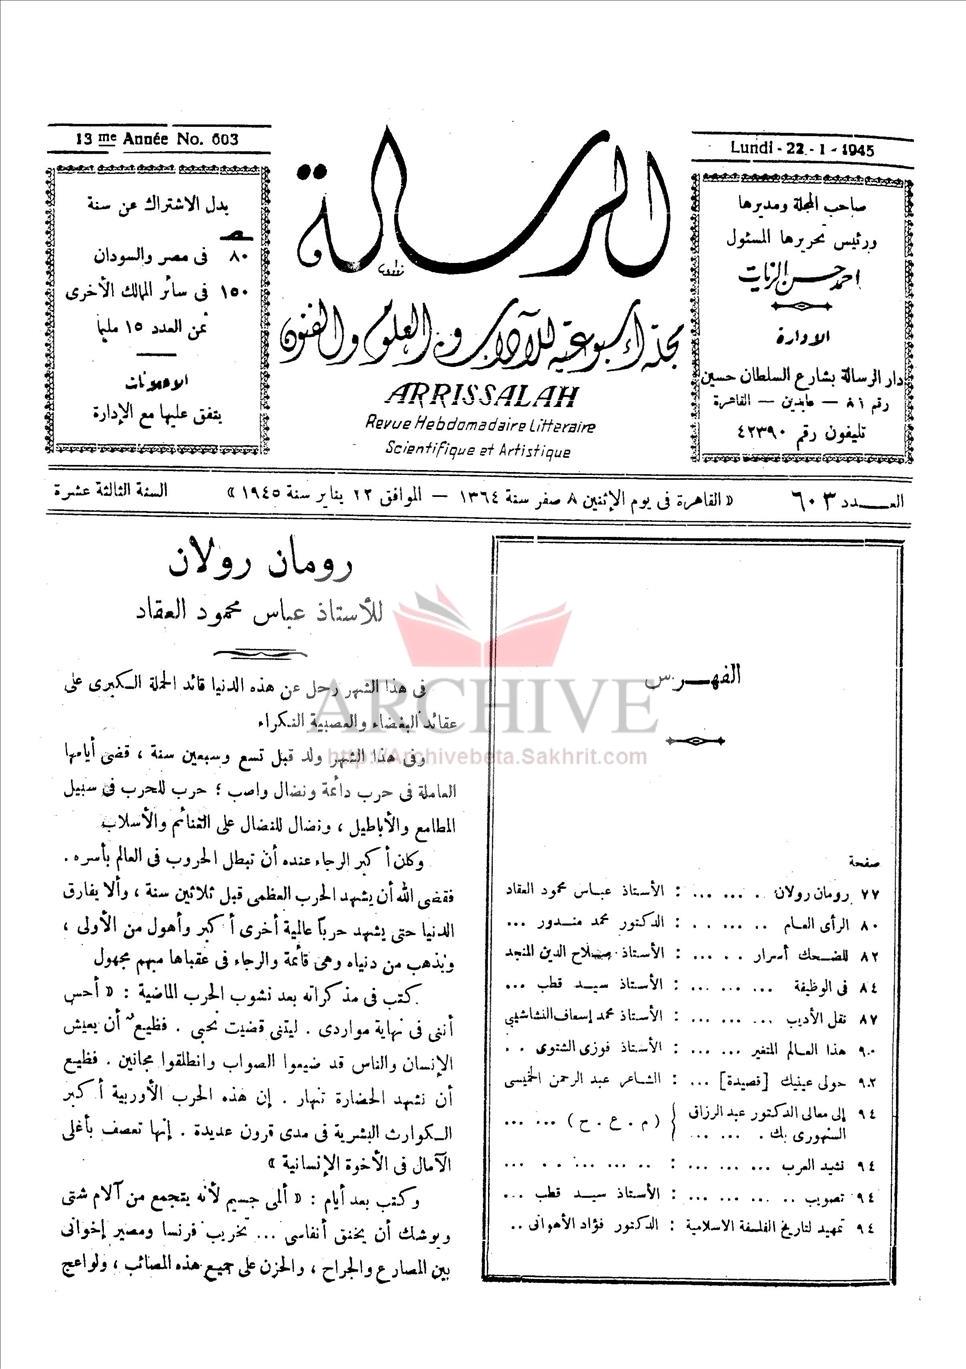 13 me Année No. 603
Lundi - 22 - 1 - 1945
بدل الاشتراك عن سنة
٨٠ فى مصر والسودان
١٥٠ فى سائر الممالك الأخرى
ثمن العدد ١٥ مليما
الاعلانات
يتفق عليها مع الإدارة
الرسالة
مجلة أسبوعية للآداب والعلوم والفنون
ARRISSALAH
Revue Hebdomadaire Litteraire
Scientifique et Artistique
صاحب المجلة ومديرها
ورئيس تحريرها المسئول
احمد حسن الزيات
الادارة
دار الرسالة بشارع السلطان حسين
رقم ٨١ — عابدين — القاهرة
تليفون رقم ٤٢٣٩٠
العـــدد ٦٠٣
« القاهرة فى يوم الإثنين ٨ صفر سنة ١٣٦٤ — الموافق ٢٢ يناير سنة ١٩٤٥ »
السنة الثالثة عشرة
الفهـرس
صفحة
٧٧ رومان رولان . ... ... : الأستاذ عباس محمود العقاد
٨٠ الرأى العام .. ... . . : الدكتور محمد مندور ...
٨٢ للضحك أسرار . . ... : الأستاذ صلاح الدين المنجد
٨٤ فى الوظيفة ... ... ... : الأستاذ سيد قطب ...
٨٧ نقل الأديب ... ... ... : الأستاذ محمد إسعاف النشاشيبي
٩٠ هذا العالم المتغير ... ... : الأستاذ فوزى الشتوى . .
٩٢ حولى عينيك [قصيدة] ... : الشاعر عبد الرحمن الخميسى
٩٤ إلى معالى الدكتور عبد الرزاق
السنهورى بك . ... ... } ( م . ع . ح ) ... ...
٩٤ نشيد العرب ... ... ... : .. ... ... . . ... ...
٩٤ تصويب .. ... ... ... : الأستاذ سيد قطب ...
٩٤ تمهيد لتاريخ الفلسفة الاسلامية : الدكتور فؤاد الأهوانى ..
رومان رولان
للأستاذ عباس محمود العقاد
فى هذا الشهر رحل عن هذه الدنيا قائد الحملة الكبرى على
عقائد البغضاء والعصبية النكراء
وفى هذا الشهر ولد قبل تسع وسبعين سنة ، قضى أيامها
العاملة فى حرب دائمة ونضال واصب ؛ حرب للحرب فى سبيل
المطامع والأباطيل ، ونضال للنضال على الغنائم والأسلاب
وكان أكبر الرجاء عنده أن تبطل الحروب فى العالم بأسره .
فقضى الله أن يشهد الحرب العظمى قبل ثلاثين سنة ، وألا يفارق
الدنيا حتى يشهد حرباً عالمية أخرى أكبر وأهول من الأولى ،
ويذهب من دنياه وهى قائمة والرجاء فى عقباها مبهم مجهول
كتب فى مذكراته بعد نشوب الحرب الماضية : « أحس
أننى فى نهاية مواردى . ليتنى قضيت نحبى . فظيع أن يعيش
الإنسان والناس قد ضيعوا الصواب وانطلقوا مجانين . فظيع
أن نشهد الحضارة تنهار . إن هذه الحرب الأوربية أكبر
الكوارث البشرية فى مدى قرون عديدة . إنها تعصف بأغلى
الآمال فى الأخوة الإنسانية »
وكتب بعد أيام : « ألمى جسيم لأنه يتجمع من آلام شتى
ويوشك أن يخنق أنفاسى ... تخريب فرنسا ومصير إخوانى
بين المصارع والجراح ، والحزن على جميع هذه المصائب ، ولواعج
ARCHIVE
http://Archivebeta.Sakhrit.com